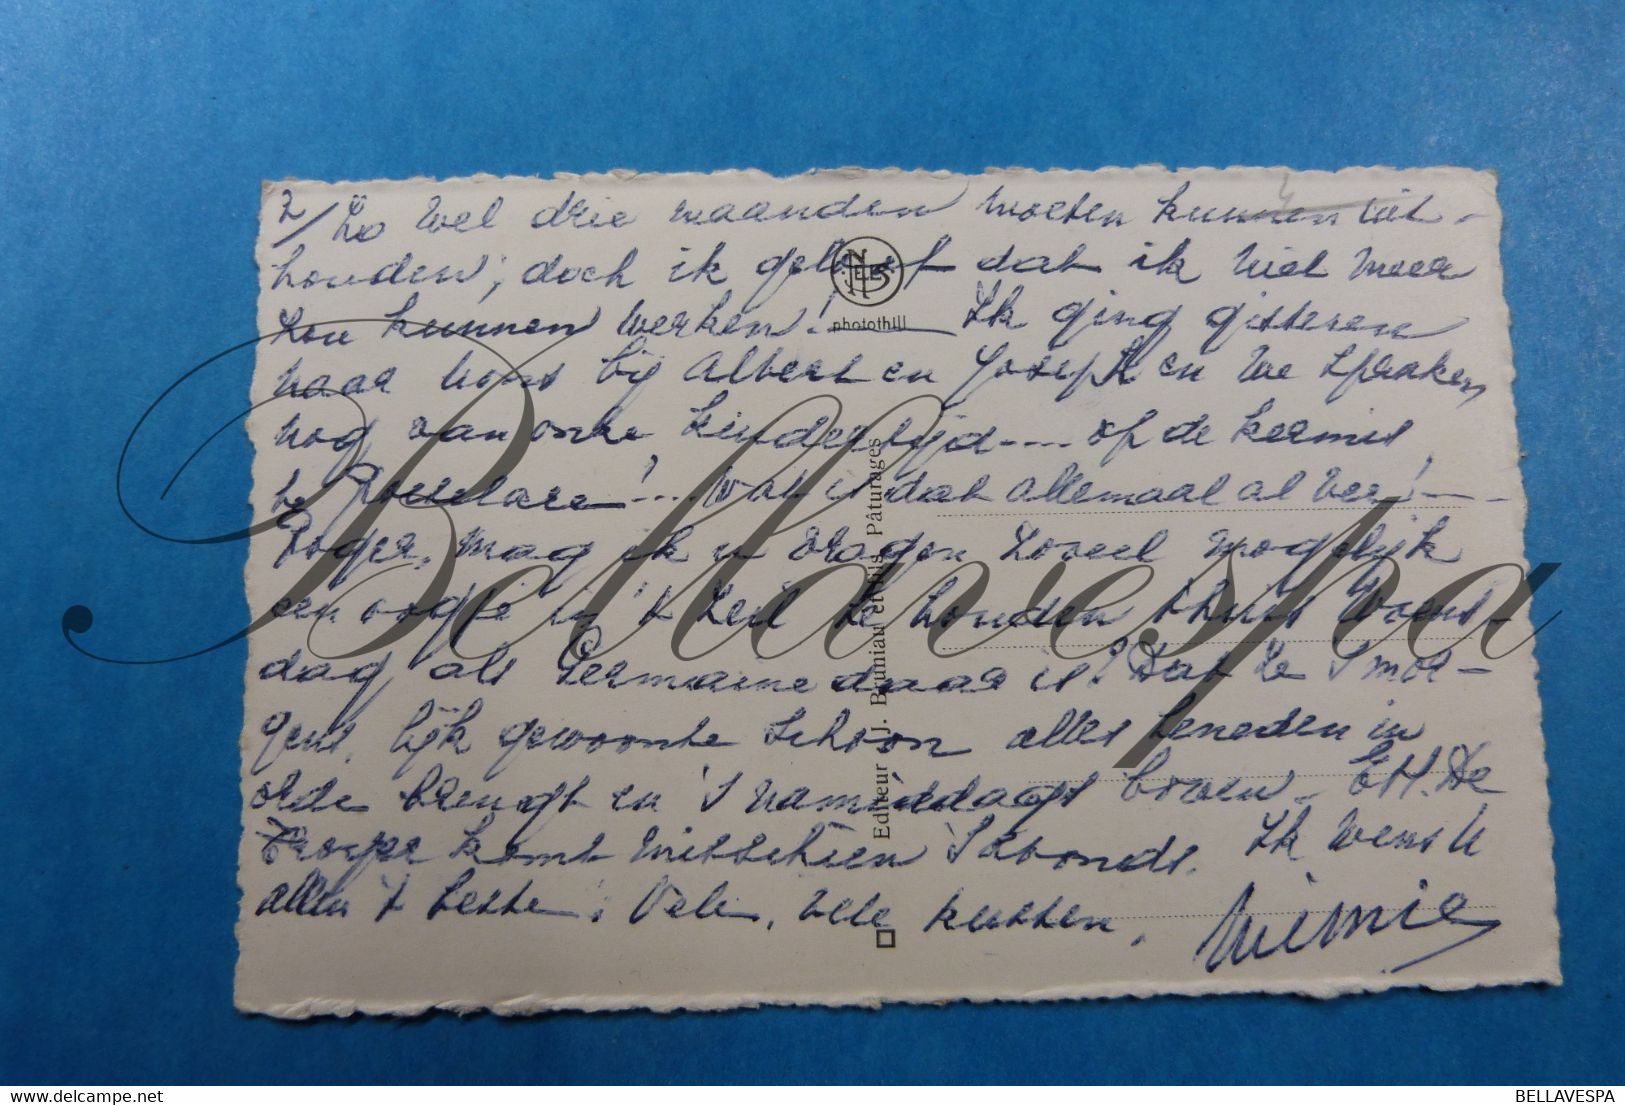 2/ Zo wel drie maanden moeten kunnen uit-
houden; doch ik geloof dat ik niet meer
zou kunnen werken! Ik ging gisteren
naar huis bij Albert en Joseph en we spraken
nog van onze kindertijd.... op de kermis
te Roeselare!... Wat is dat allemaal al ver!---
Roger, mag ik u vragen zoveel mogelijk
een oogje in 't zeil te houden thuis woens-
dag als Germaine daar is? Dat ze 's mor-
gens, lijk gewoonte schoon alles beneden in
orde brengt en 's namiddags boven. E.H. De
komt misschien 's avonds. Ik wens U
allen 't beste. Vele, vele kussen,
Mimie
NELS
photothill
Editeur J. Bruniau et fils. Pâturages
Bellavespa
BELLAVESPA